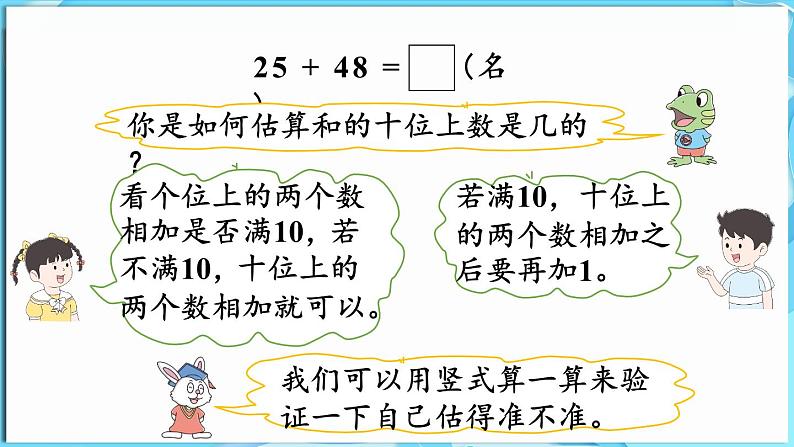 25 + 48 = （名
）
你是如何估算和的十位上数是几的
？
看个位上的两个数
相加是否满10，若
不满10，十位上的
两个数相加就可以。
若满10，十位上
的两个数相加之
后要再加1。
我们可以用竖式算一算来验
证一下自己估得准不准。